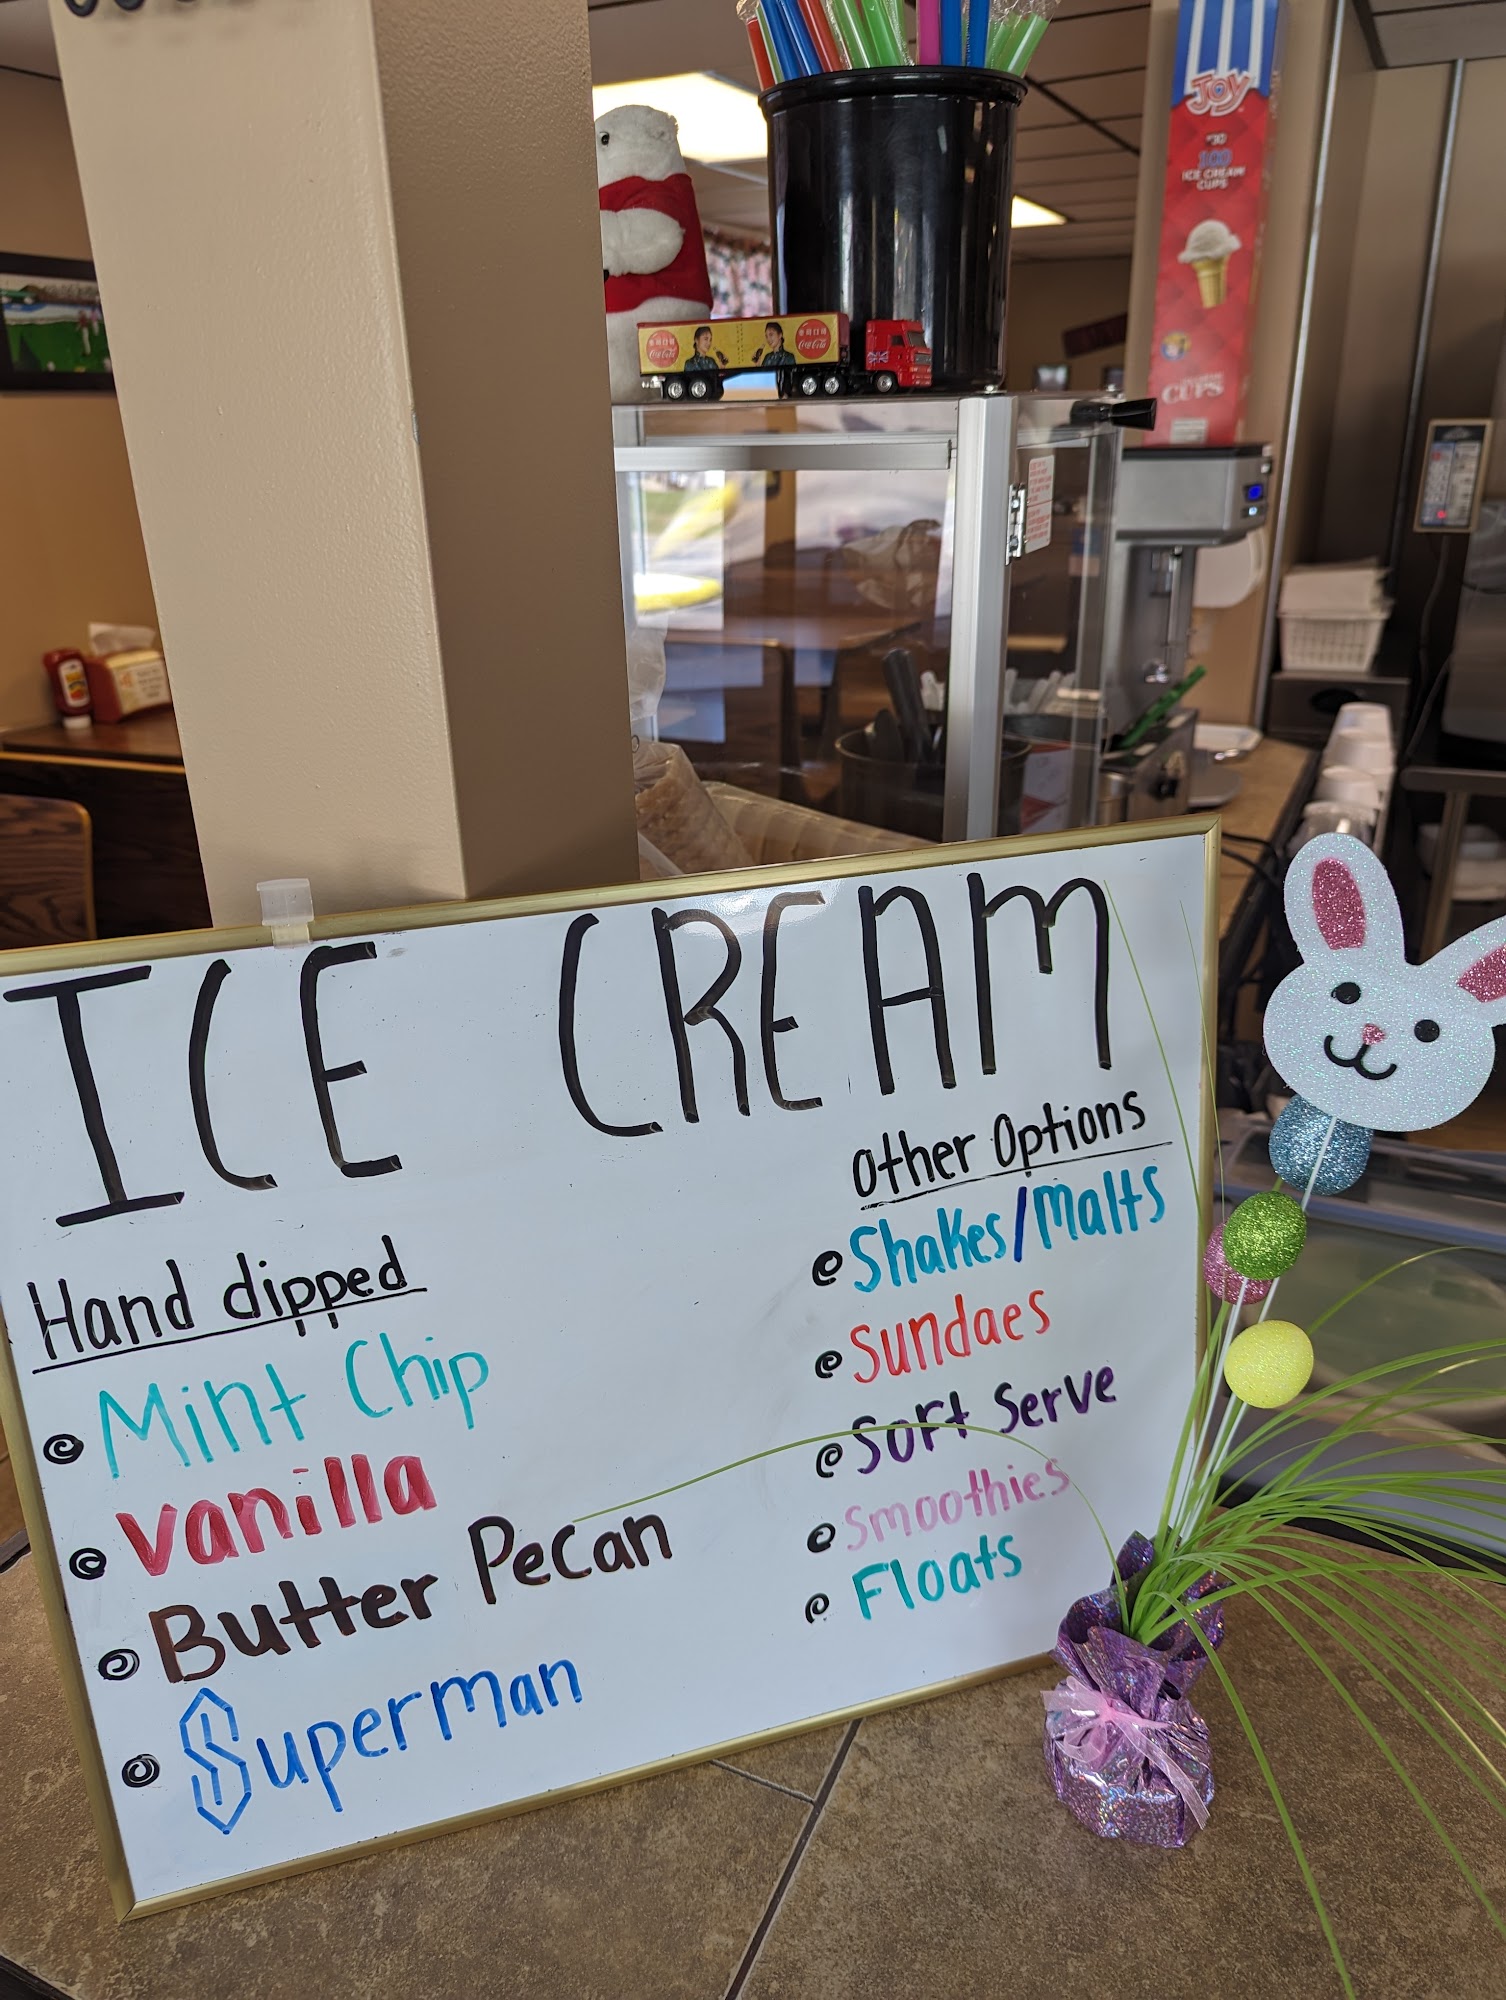 JOY
ICE CREAM
CUPS
CUPS
Coca-Cola
Coca-Cola
ICE CREAM
Hand dipped
Mint Chip
Vanilla
Butter Pecan
Superman
Other Options
Shakes/Malts
Sundaes
Soft Serve
Smoothies
Floats